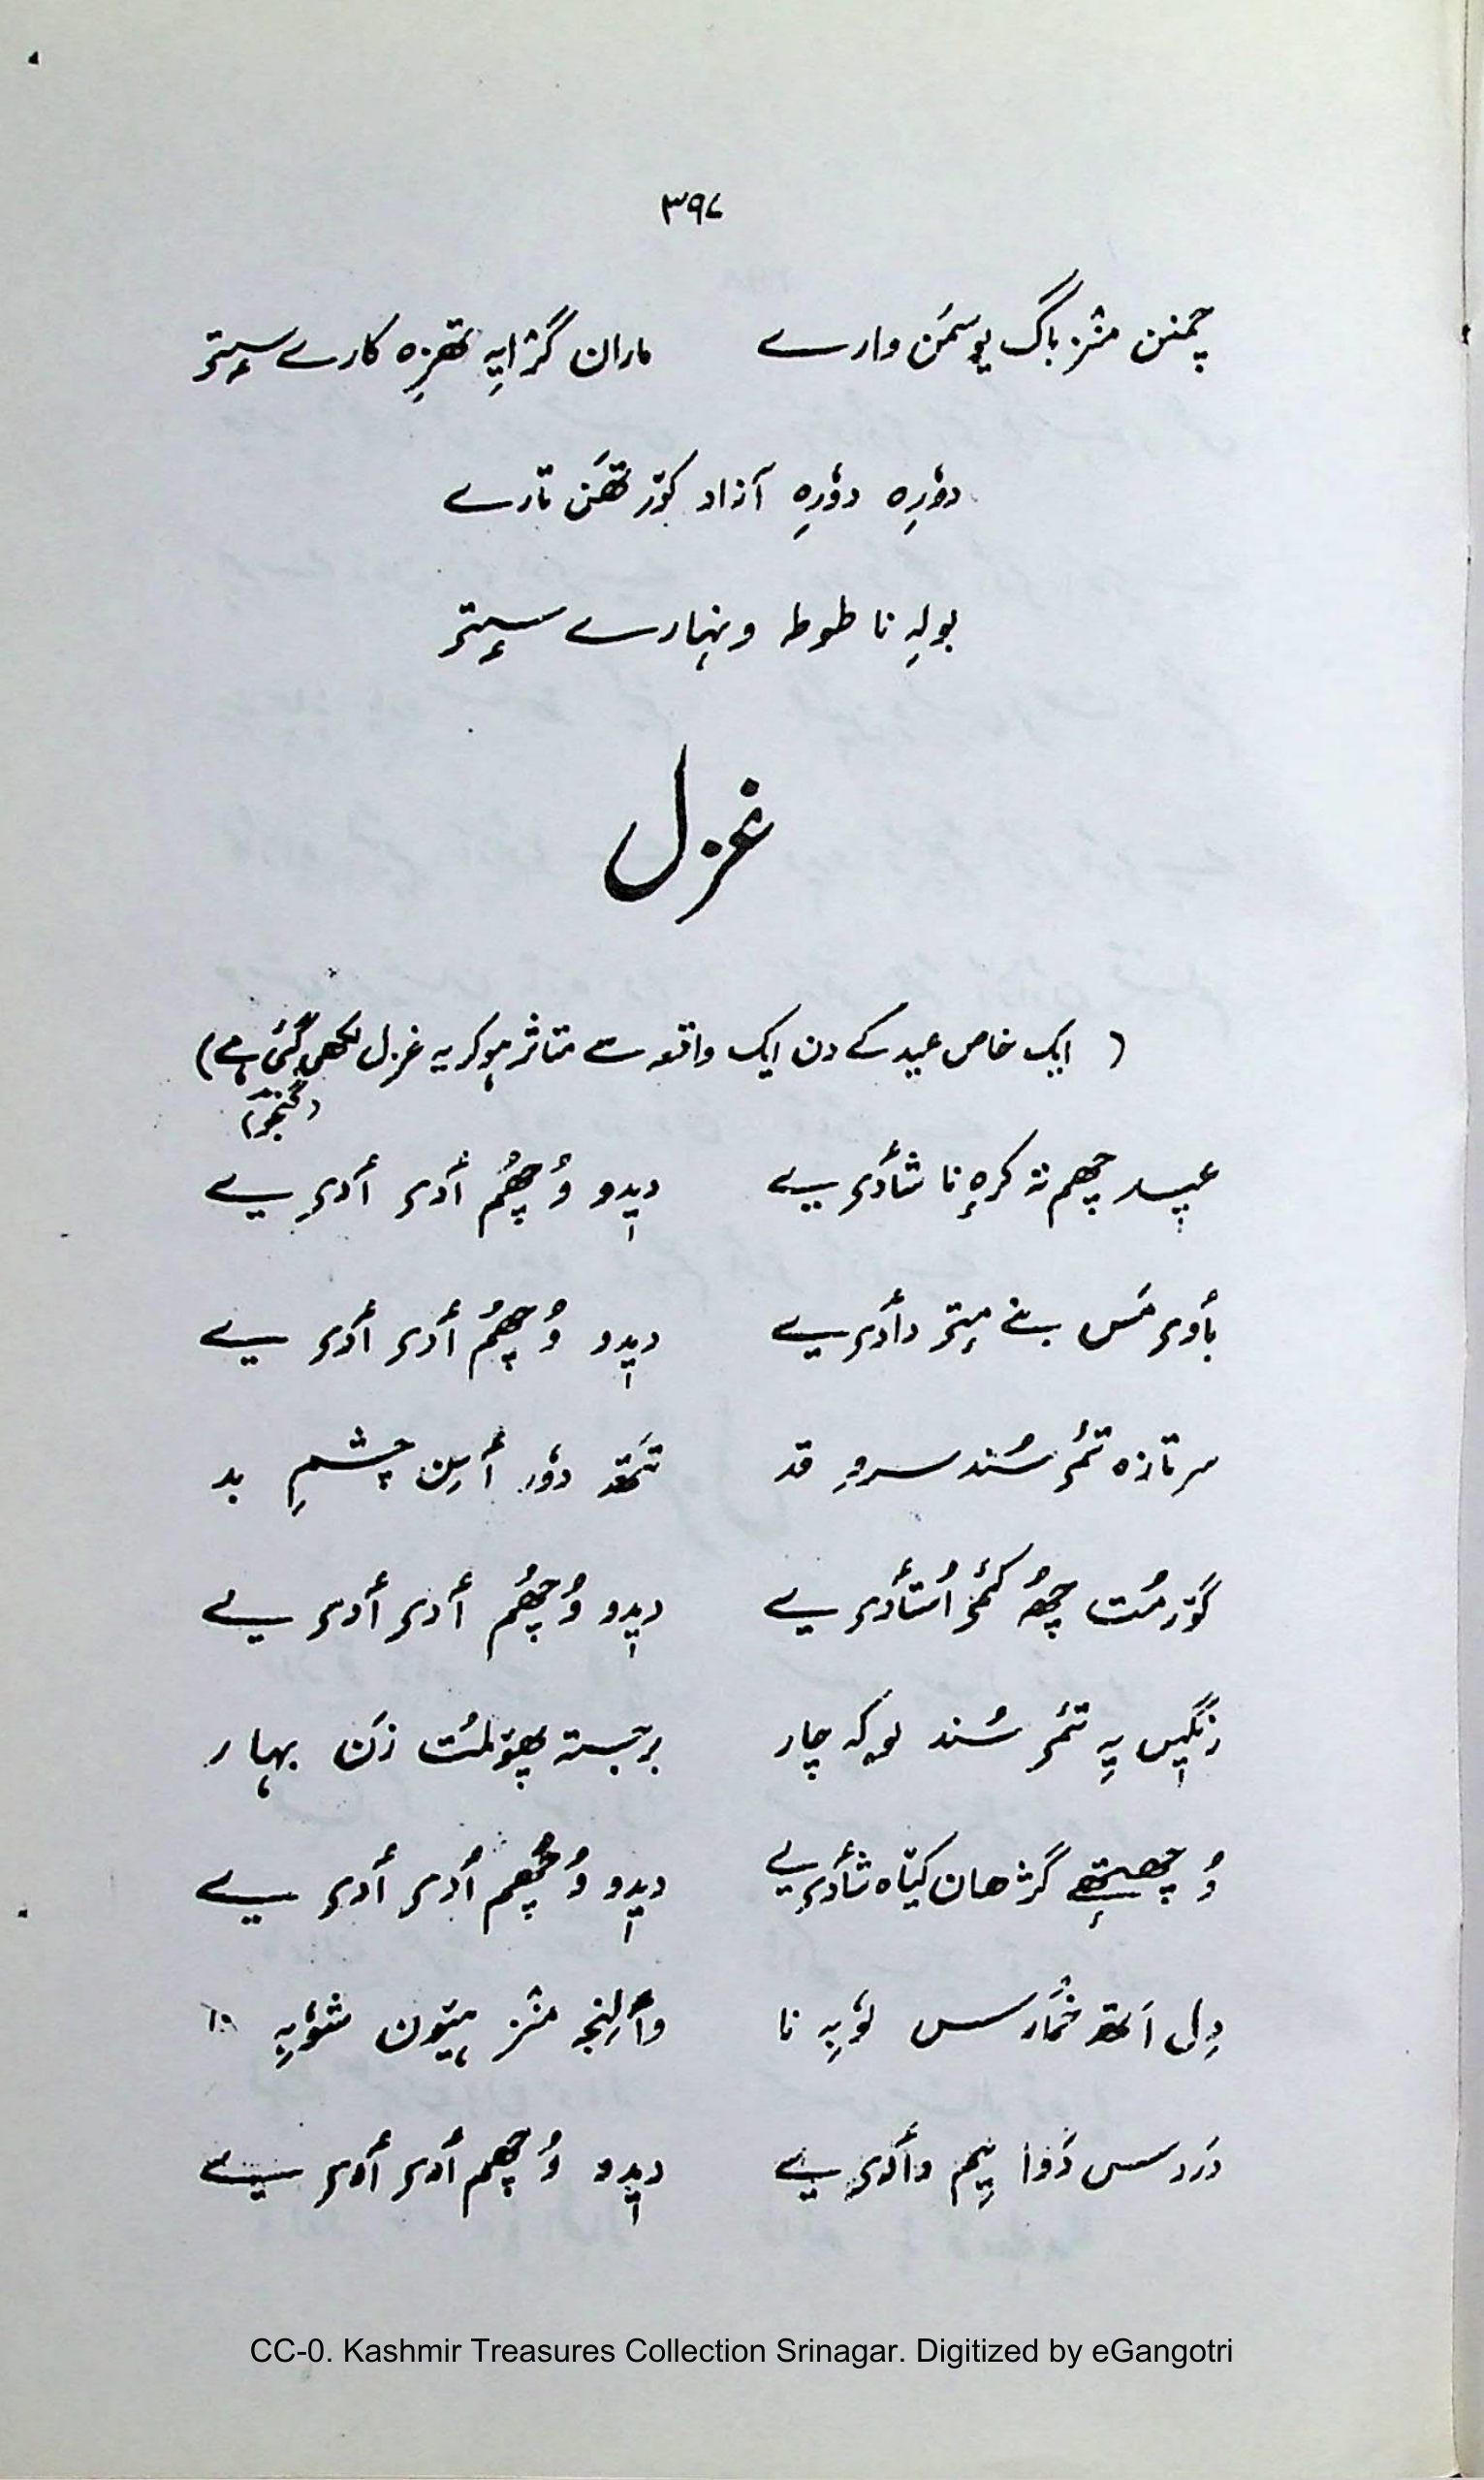 ۳۹۷
چمنن منٛز باگ یوسمَن وارے ماران گژایہِ تھزِہ کارے سٟتۍ
دوٗرِہ دوٗرِہ آزاد کوٚر تھَن تارے
بولہِ نا طوطہ ونہارے سٟتۍ
غزل
( ایک خاص عید کے دن ایک واقعہ سے متاثر ہوکر یہ غزل لکھی گئی ہے )
(گنجوٗ)
عیٖد چھم تہ کرہٕ نا شأدی یے دیٖدو وُچھُم أدۍ أدۍ یے
بأوۍ مَس بنے میٖتۍ دأدۍ یے دیٖدو وُچھُم أدۍ أدۍ یے
سرتازہ تٔمۍ سُند سروِ قد تَمتھ دوٗر أسِن چشمِ بد
گوٚرمُت چھُ کٔمۍ اُستأدۍ یے دیٖدو وُچھُم أدۍ أدۍ یے
رنگیٖں یہِ تٔمۍ سُند لوکہ چار برجستہ پھوٚلمُت زَن بہار
وُچھتھٕے گژھان کیٛاہ شأدۍ یے دیٖدو وُچھم أدۍ أدۍ یے
دِل اَتھ خُمارس لوٗبہِ نا وألِنجہ منٛز ہیوٚن شوٗبہِ نا
دَردسس دَوا ییٚم دأدۍ یے دیٖدو وُچھم أدۍ أدۍ یے
CC-0. Kashmir Treasures Collection Srinagar. Digitized by eGangotri